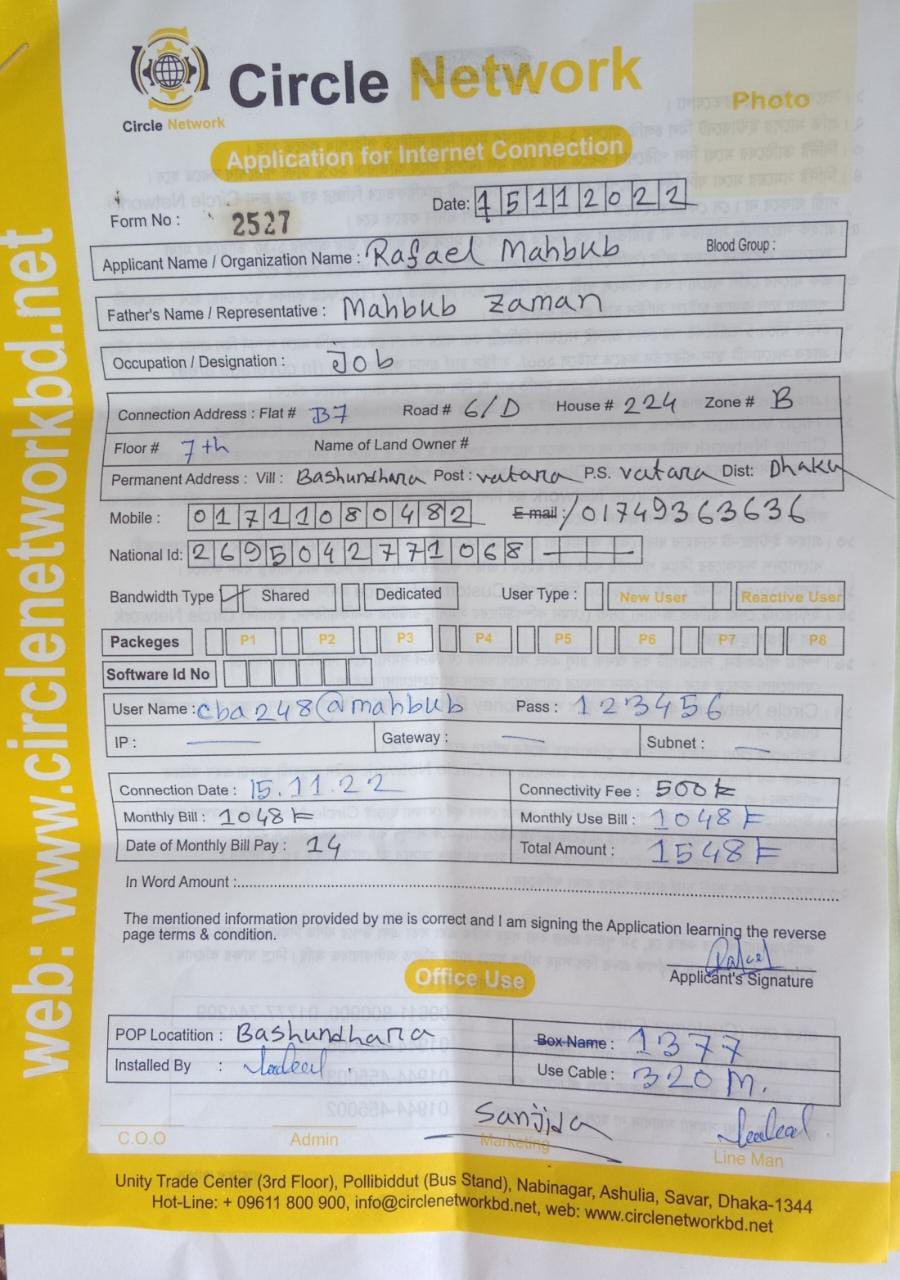 Circle Network
Circle Network
Photo
Application for Internet Connection
Form No : 2527
Date: 15112022
Applicant Name / Organization Name : Rafael Mahbub Blood Group :
Father's Name / Representative : Mahbub Zaman
Occupation / Designation : Job
Connection Address : Flat # B7 Road # 6/D House # 224 Zone # B
Floor # 7th Name of Land Owner #
Permanent Address : Vill : Bashundhara Post : vatara P.S. vatara Dist: Dhaka
Mobile : 01711080482 E-mail : / 01749363636
National Id: 2695042771068 - - -
Bandwidth Type Shared Dedicated User Type : New User Reactive User
Packeges P1 P2 P3 P4 P5 P6 P7 P8
Software Id No
User Name : cba248@mahbub Pass : 123456
IP : — Gateway : — Subnet : —
Connection Date : 15.11.22 Connectivity Fee : 500
Monthly Bill : 1048 Monthly Use Bill : 1048
Date of Monthly Bill Pay : 14 Total Amount : 1548
In Word Amount :
The mentioned information provided by me is correct and I am signing the Application learning the reverse
page terms & condition.
Applicant's Signature
Office Use
POP Locatition : Bashundhara Box Name : 1377
Installed By : Use Cable : 320 M.
Sanjida
C.O.O Admin Marketing Line Man
Unity Trade Center (3rd Floor), Pollibiddut (Bus Stand), Nabinagar, Ashulia, Savar, Dhaka-1344
Hot-Line: + 09611 800 900, info@circlenetworkbd.net, web: www.circlenetworkbd.net
web: www.circlenetworkbd.net